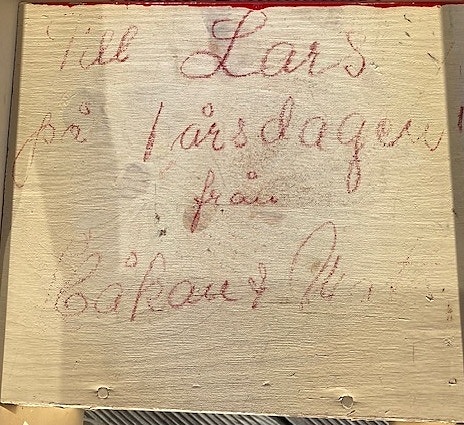 Till Lars
på 1 årsdagen
från
Håkan &